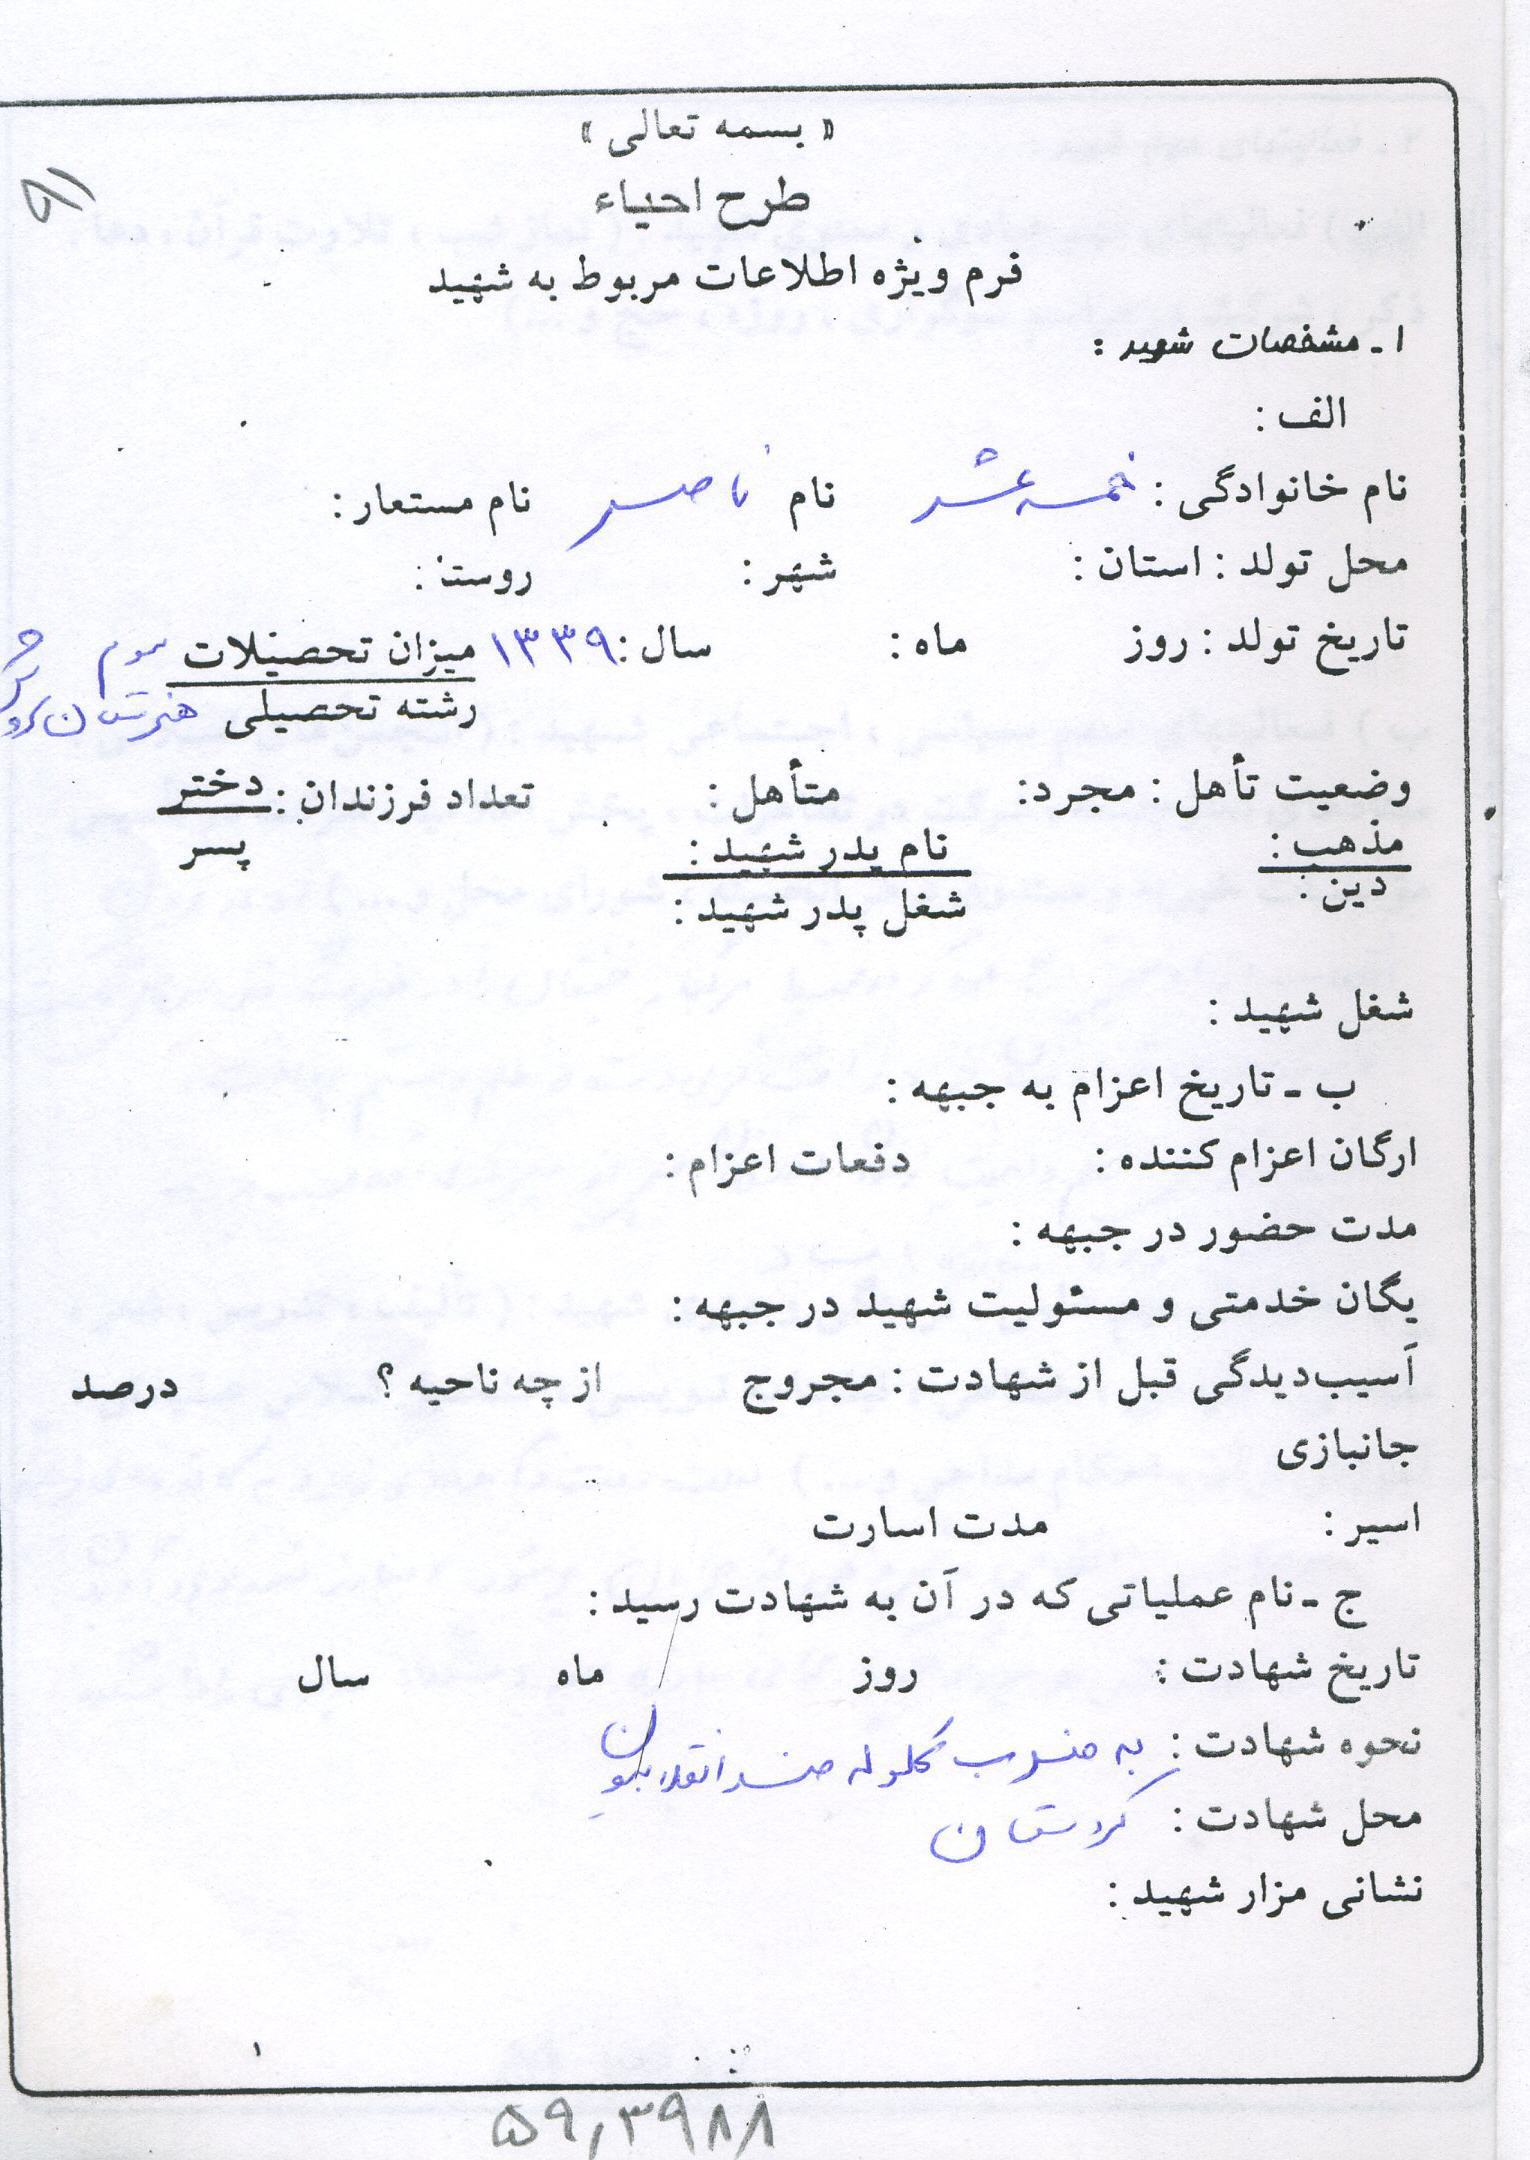 « بسمه تعالی »
طرح احیاء
فرم ویژه اطلاعات مربوط به شهید
۱ـ مشخصات شهید :
الف :
نام خانوادگی : خمسه عشر نام ناصر نام مستعار :
محل تولد : استان : شهر : روستا :
تاریخ تولد : روز ماه : سال : ۱۳۳۹ میزان تحصیلات سوم
رشته تحصیلی هنرستان
وضعیت تأهل : مجرد: متأهل : تعداد فرزندان : دختر
پسر
مذهب : نام پدر شهید :
دین : شغل پدر شهید :
شغل شهید :
ب ـ تاریخ اعزام به جبهه :
ارگان اعزام کننده : دفعات اعزام :
مدت حضور در جبهه :
یگان خدمتی و مسئولیت شهید در جبهه :
آسیب‌دیدگی قبل از شهادت : مجروح از چه ناحیه ؟ درصد
جانبازی
اسیر : مدت اسارت
ج ـ نام عملیاتی که در آن به شهادت رسید :
تاریخ شهادت : روز ماه سال
نحوه شهادت : به ضرب گلوله ضد انقلابیون
محل شهادت : کردستان
نشانی مزار شهید :
۱
۵۹,۳۹۸۸